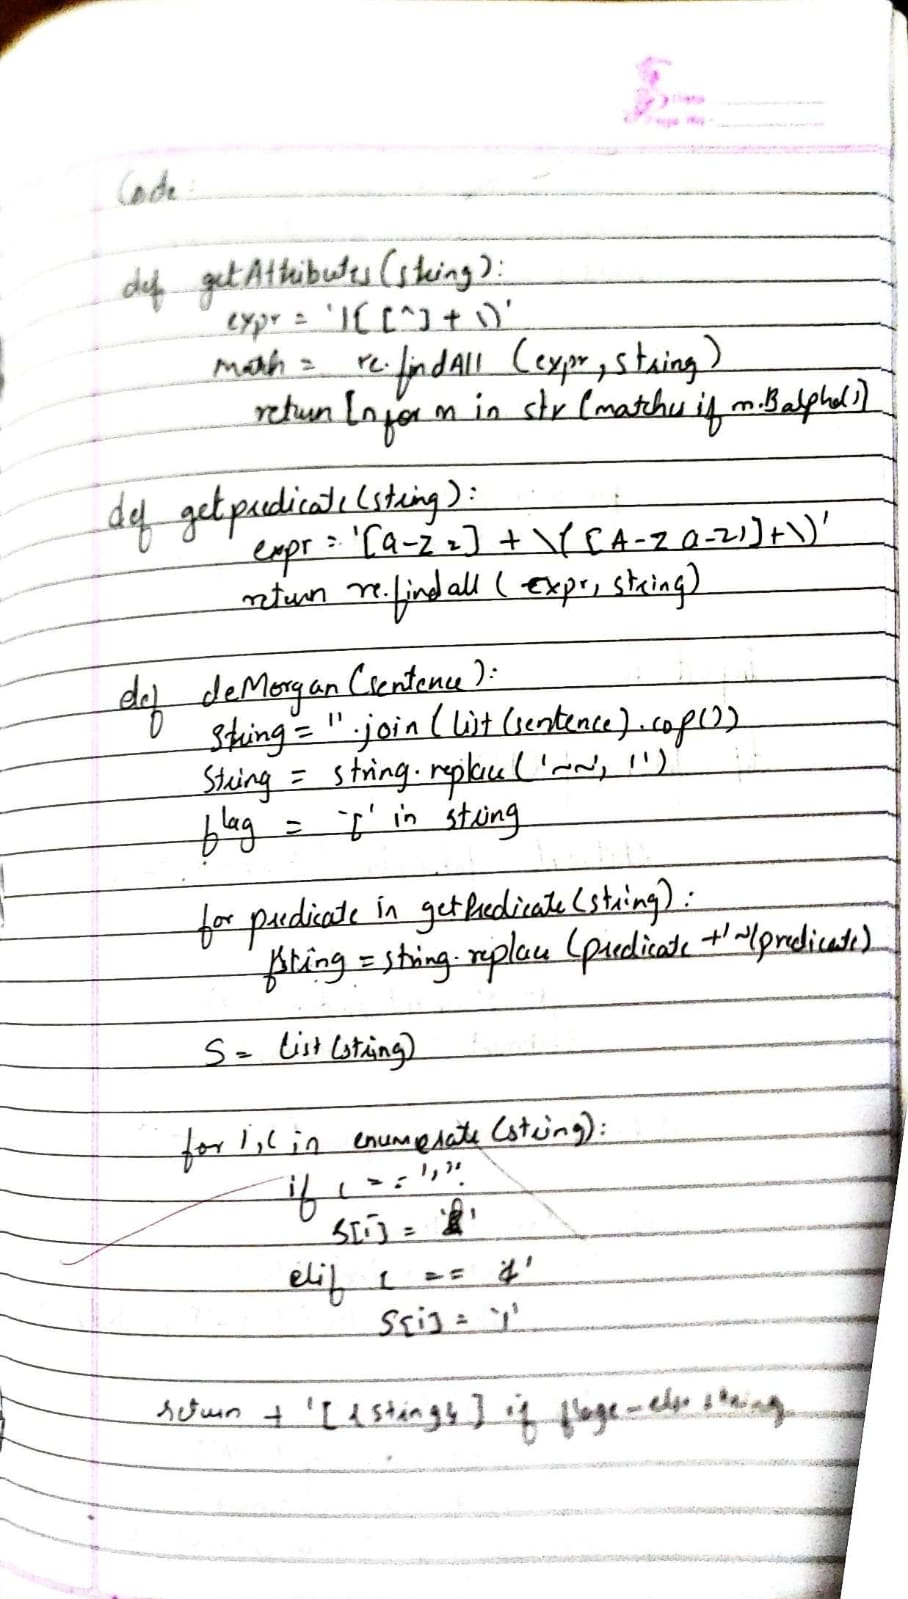 Code:
def getAttributes(string):
expr = '\([^]+\)'
math = re.findAll (expr, string)
return [n for m in str (matches if m.
def getpredicate(string):
expr = '[a-z ~] + \([A-Z a-z,]+\)'
return re.findall (expr, string)
def deMorgan (sentence):
string = ''.join (list (sentence).copy())
string = string.replace('~~', '')
flag = '[' in string
for predicate in getPredicate(string):
string = string.replace (predicate +'~(predicate)
S = list (string)
for i, c in enumerate (string):
if c ==
S[i] =
elif c ==
S[i] = '|'
return + '[{string}] if flag else string